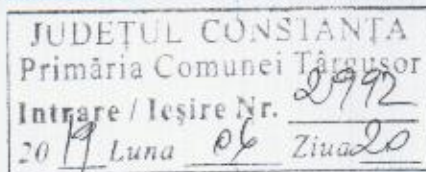 JUDEȚUL CONSTANȚA
Primăria Comunei Târgușor
Intrare / Ieșire Nr. 2992
2019 Luna 06 Ziua 20